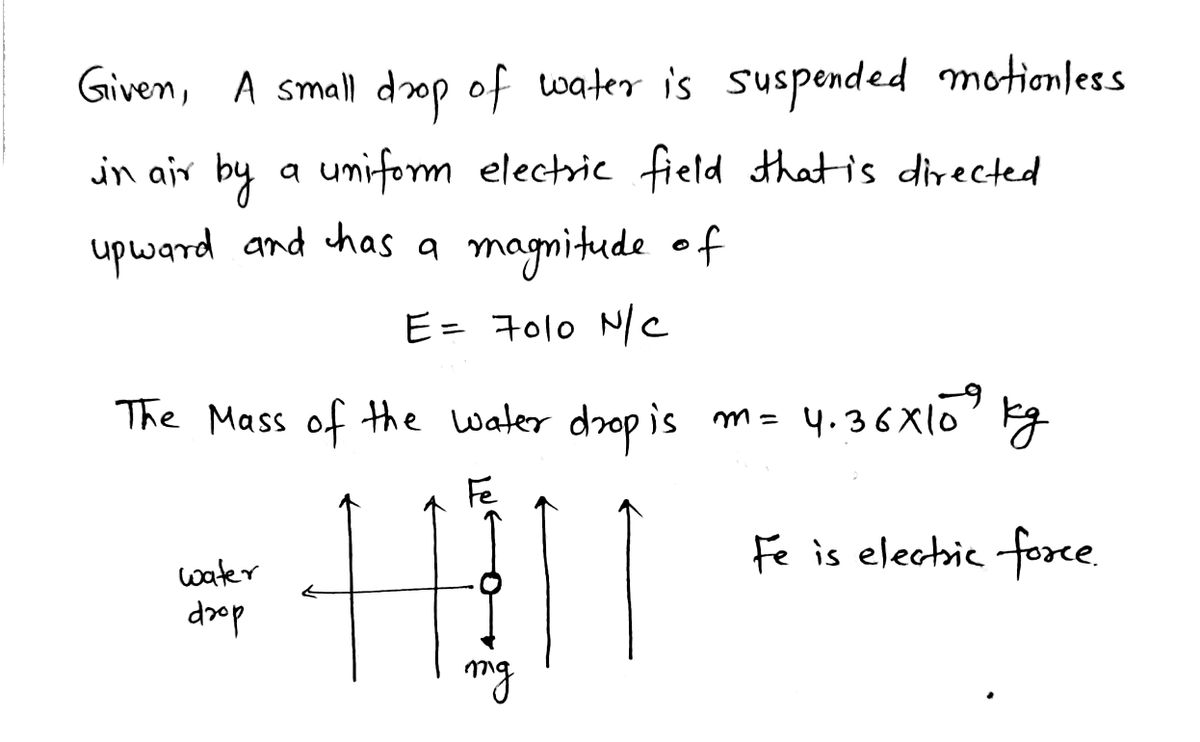 Given, A small drop of water is suspended motionless
in air by a uniform electric field that is directed
upward and has a magnitude of
E = 7010 N/C
The Mass of the water drop is m = 4.36×10⁻⁹ kg
Fe
Fe is electric force.
water
drop
mg